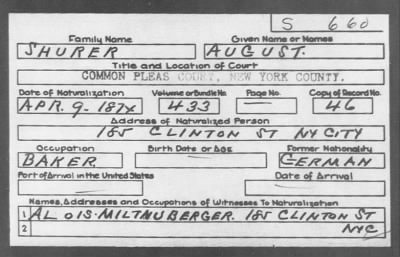 S 660
Family Name Given Name or Names
SHURER AUGUST.
Title and Location of Court
COMMON PLEAS COURT, NEW YORK COUNTY.
Date of Naturalization Volume or Bundle No. Page No. Copy of Record No.
APR. 9 - 1874 433 — 46
Address of Naturalized Person
185 CLINTON ST NY CITY
Occupation Birth Date or Age Former Nationality
BAKER GERMAN
Port of Arrival in the United States Date of Arrival
Names, Addresses and Occupations of Witnesses To Naturalization
1 ALOIS MILTNUBERGER. 185 CLINTON ST
2 NYC